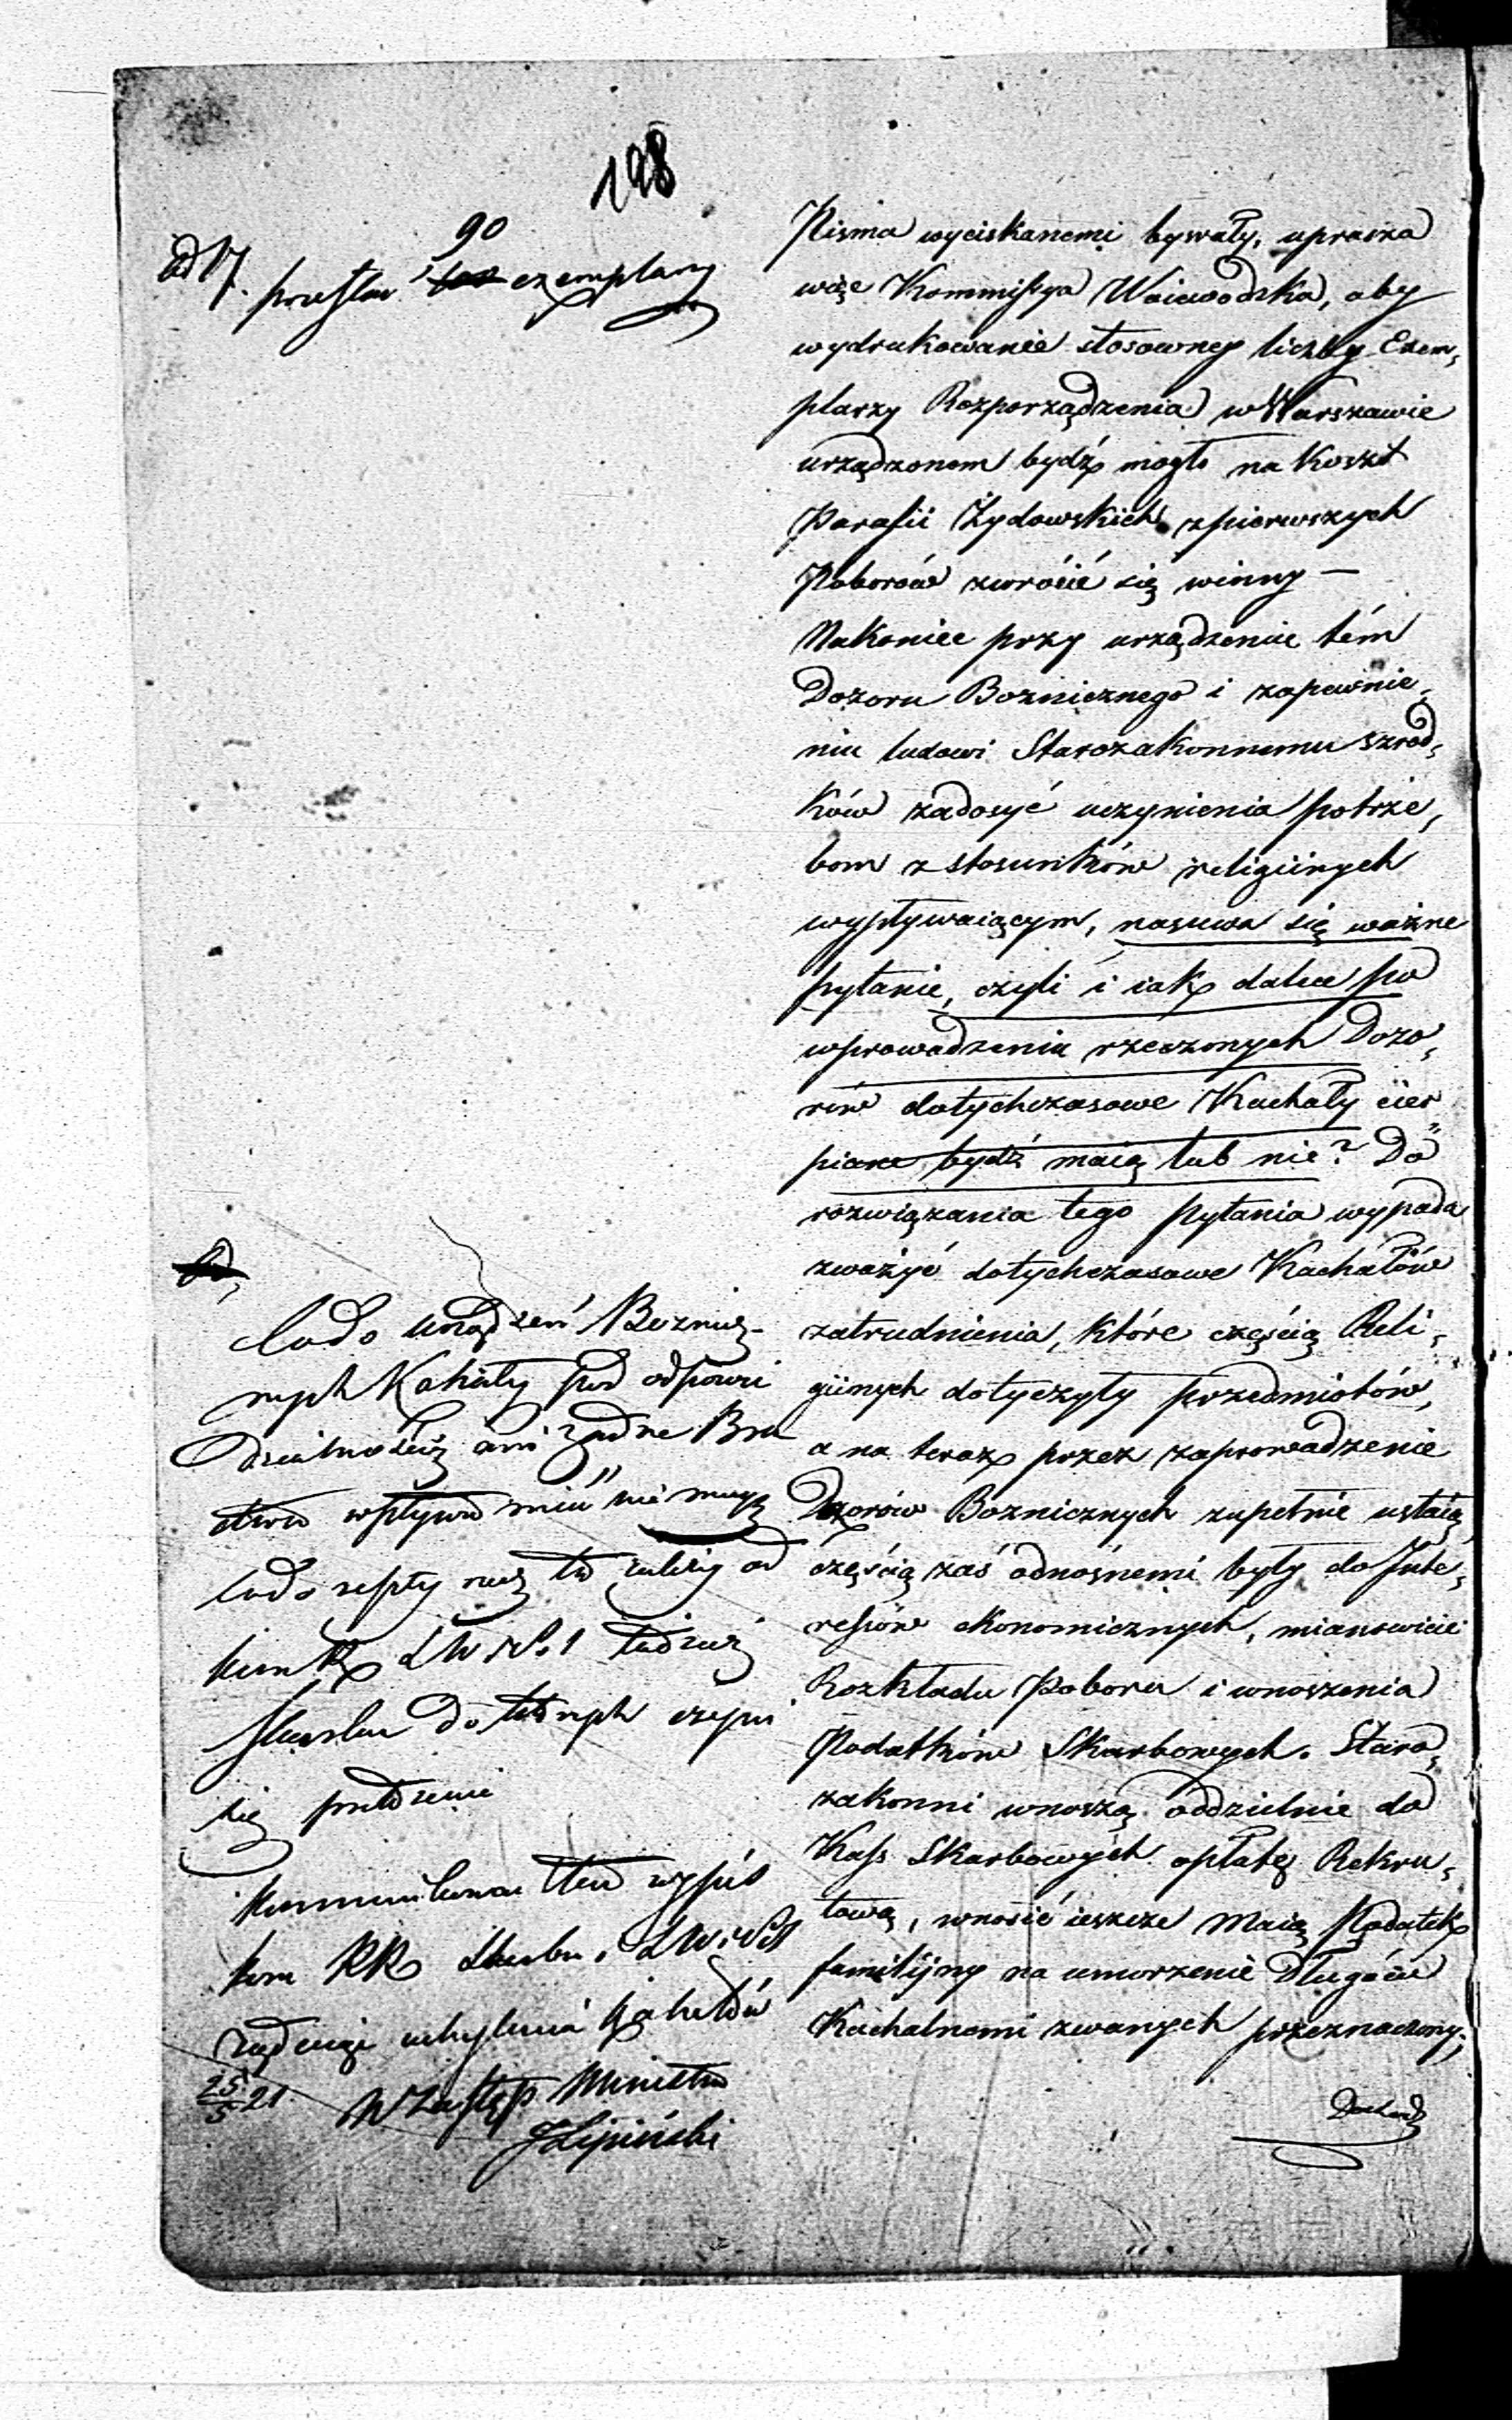 198
90
ad 17. przesłać exemplarzy
Pisma wyciskanemi bywały, uprasza
więc Kommissya Woiewodzka, aby
wydrukowanie stosowney liczby Exem,
plarzy Rozporządzenia w Warszawie
urządzonem bydź mogło na koszt
Parafii Żydowskich z pierwszych
Poborów zwrócić się winny —
Nakoniec przy urządzeniu tém
Dozoru Boznicznego i zapewnie,
niu ludowi Starozakonnemu szrod,
ków zadosyć uczynienia potrze,
bom z stosunków religiinych
wypływaiącym, nasuwa się ważne
pytanie, czyli i iak dalece po
wprowadzeniu rzeczonych Dozo,
rów dotychczasowe Kachały cier
piane bydź maią lub nie? Do
rozwiązania tego pytania wypada
zważyć dotychczasowe Kachałów
zatrudnienia, które częścią Reli,
giinych dotyczyły przedmiotów,
a na teraz przez zaprowadzenie
Dozorów Boznicznych zupełnie ustaią
częścią zaś odnośnemi były do Inte,
ressów ekonomicznych, mianowicie
Rozkładu Poboru i wnoszenia
Podatków Skarbowych. Staro,
zakonni wnoszą oddzielnie do
Kass Skarbowych opłatę Rekru,
tową, wnosić ieszcze maią Podatek
familijny na umorzenie Długów
Kachalnemi zwanych przeznaczony;
co do urządzeń Bozni-
nych Kahały pod odpowie
dzialnością ani żadne Bra
ctwa wpływu mieć nie mogą
co do reszty to należy od
Skarbu do
się
kommunikować ten wypis
kom RR Skarbu i
uchylenia Kahałów
25/5 21 W Zastęp Ministra
JLipiński